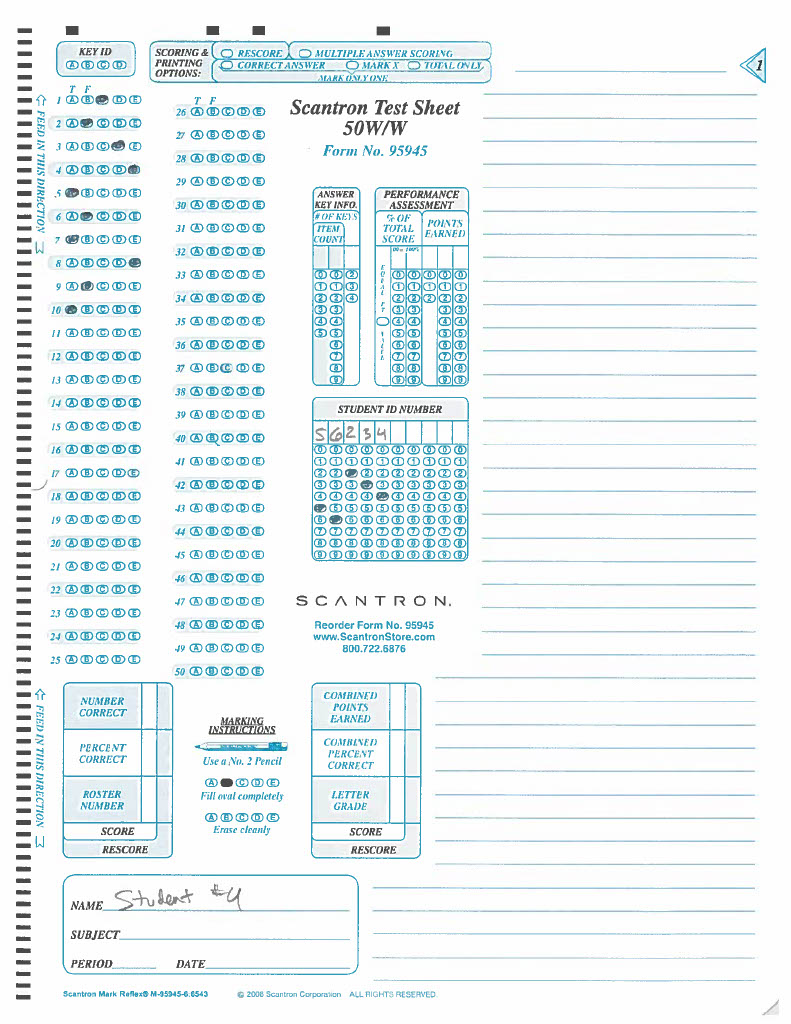 KEY ID
A B C D
SCORING & PRINTING OPTIONS:
RESCORE MULTIPLE ANSWER SCORING
CORRECT ANSWER MARK X TOTAL ONLY
MARK ONLY ONE
1
T F
FEED IN THIS DIRECTION
1 A B D E
2 A C D E
3 A B C E
4 A B C D
5 B C D E
6 A C D E
7 B C D E
8 A B C D
9 A C D E
10 B C D E
11 A B C D E
12 A B C D E
13 A B C D E
14 A B C D E
15 A B C D E
16 A B C D E
17 A B C D E
18 A B C D E
19 A B C D E
20 A B C D E
21 A B C D E
22 A B C D E
23 A B C D E
24 A B C D E
25 A B C D E
T F
26 A B C D E
27 A B C D E
28 A B C D E
29 A B C D E
30 A B C D E
31 A B C D E
32 A B C D E
33 A B C D E
34 A B C D E
35 A B C D E
36 A B C D E
37 A B C D E
38 A B C D E
39 A B C D E
40 A B C D E
41 A B C D E
42 A B C D E
43 A B C D E
44 A B C D E
45 A B C D E
46 A B C D E
47 A B C D E
48 A B C D E
49 A B C D E
50 A B C D E
Scantron Test Sheet
50W/W
Form No. 95945
ANSWER
KEY INFO.
# OF KEYS
ITEM
COUNT
0 0 2
1 1 3
2 2 4
3 3
4 4
5 5
6
7
8
9
PERFORMANCE
ASSESSMENT
% OF
TOTAL
SCORE
POINTS
EARNED
EQUAL PT VALUE
0 0 0 0 0
1 1 1 1 1
2 2 2 2 2
3 3 3 3
4 4 4 4
5 5 5 5
6 6 6 6
7 7 7 7
8 8 8 8
9 9 9 9
STUDENT ID NUMBER
5 6 2 3 4
0 0 0 0 0 0 0 0 0 0
1 1 1 1 1 1 1 1 1 1
2 2 2 2 2 2 2 2 2
3 3 3 3 3 3 3 3 3
4 4 4 4 4 4 4 4 4
5 5 5 5 5 5 5 5 5
6 6 6 6 6 6 6 6 6
7 7 7 7 7 7 7 7 7 7
8 8 8 8 8 8 8 8 8 8
9 9 9 9 9 9 9 9 9 9
SCANTRON.
Reorder Form No. 95945
www.ScantronStore.com
800.722.6876
FEED IN THIS DIRECTION
NUMBER
CORRECT
PERCENT
CORRECT
ROSTER
NUMBER
SCORE
RESCORE
MARKING
INSTRUCTIONS
Use a No. 2 Pencil
A C D E
Fill oval completely
A B C D E
Erase cleanly
COMBINED
POINTS
EARNED
COMBINED
PERCENT
CORRECT
LETTER
GRADE
SCORE
RESCORE
NAME Student #4
SUBJECT
PERIOD DATE
Scantron Mark Reflex® M-95945-6:6543 © 2006 Scantron Corporation ALL RIGHTS RESERVED.